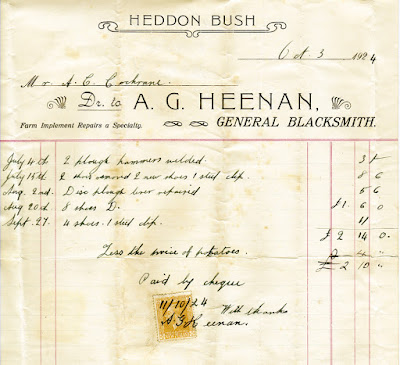 HEDDON BUSH
Oct. 3 1924
Mr A. C. Cochrane.
Dr. to A. G. HEENAN,
Farm Implement Repairs a Specialty. GENERAL BLACKSMITH.
July 4th 2 plough hammers welded. 3
July 15th 2 shoes removed 2 new shoes 1 steel clip. 8 6
Aug. 2nd. Disc plough lever repaired 5 6
Aug 20th 8 shoes D. £1 6 0
Sept. 27. 4 shoes. 1 steel clip. 11/
£ 2 14 0.
Less the price of potatoes. 4 "
£ 2 10 "
Paid by cheque
11/10/24 With thanks
A G Heenan.